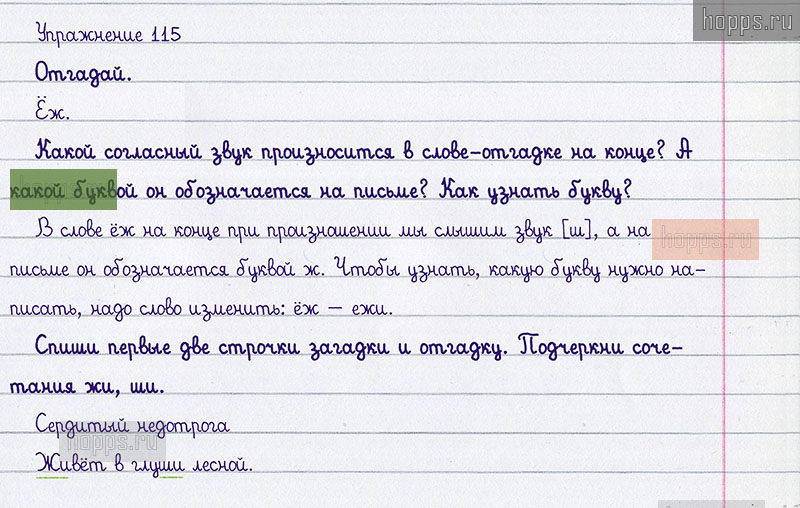 hopps.ru
Упражнение 115
Отгадай.
Ёж.
Какой согласный звук произносится в слове-отгадке на конце? А
какой буквой он обозначается на письме? Как узнать букву?
В слове ёж на конце при произношении мы слышим звук [ш], а на
hopps.ru
письме он обозначается буквой ж. Чтобы узнать, какую букву нужно на-
писать, надо слово изменить: ёж – ежи.
Спиши первые две строчки загадки и отгадку. Подчеркни соче-
тания жи, ши.
Сердитый недотрога
hopps.ru
Живёт в глуши лесной.